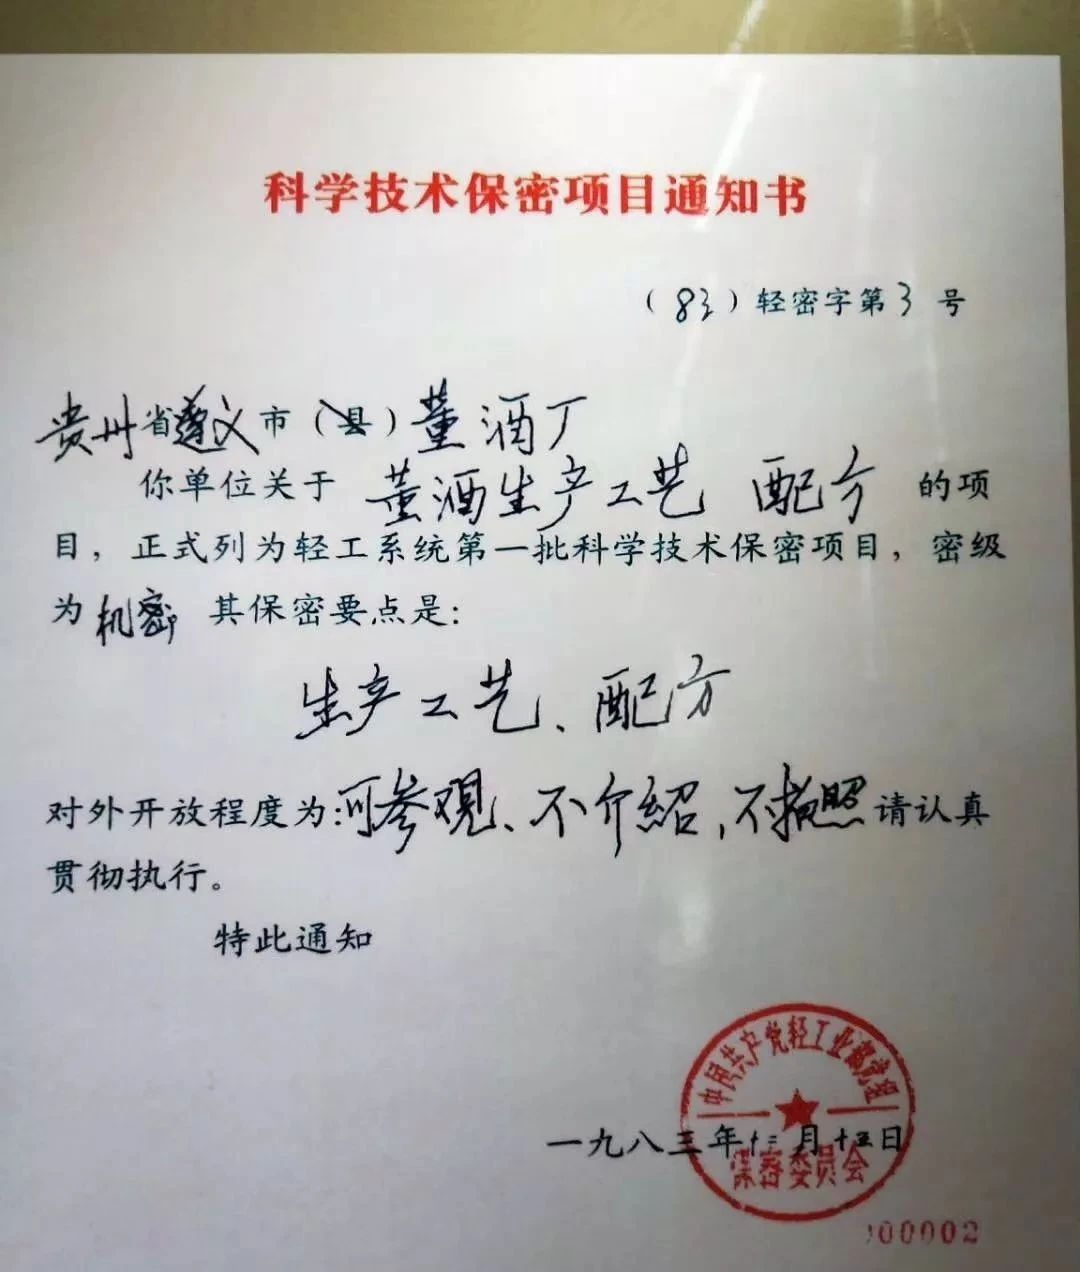 科学技术保密项目通知书
（83）轻密字第3号
贵州省遵义市（县）董酒厂
你单位关于 董酒生产工艺 配方 的项
目，正式列为轻工系统第一批科学技术保密项目，密级
为机密 其保密要点是：
生产工艺、配方
对外开放程度为：可参观、不介紹，不拍照请认真
贯彻执行。
特此通知
中国共产党轻工业部党组
一九八三年十二月十五日
保密委员会
000002